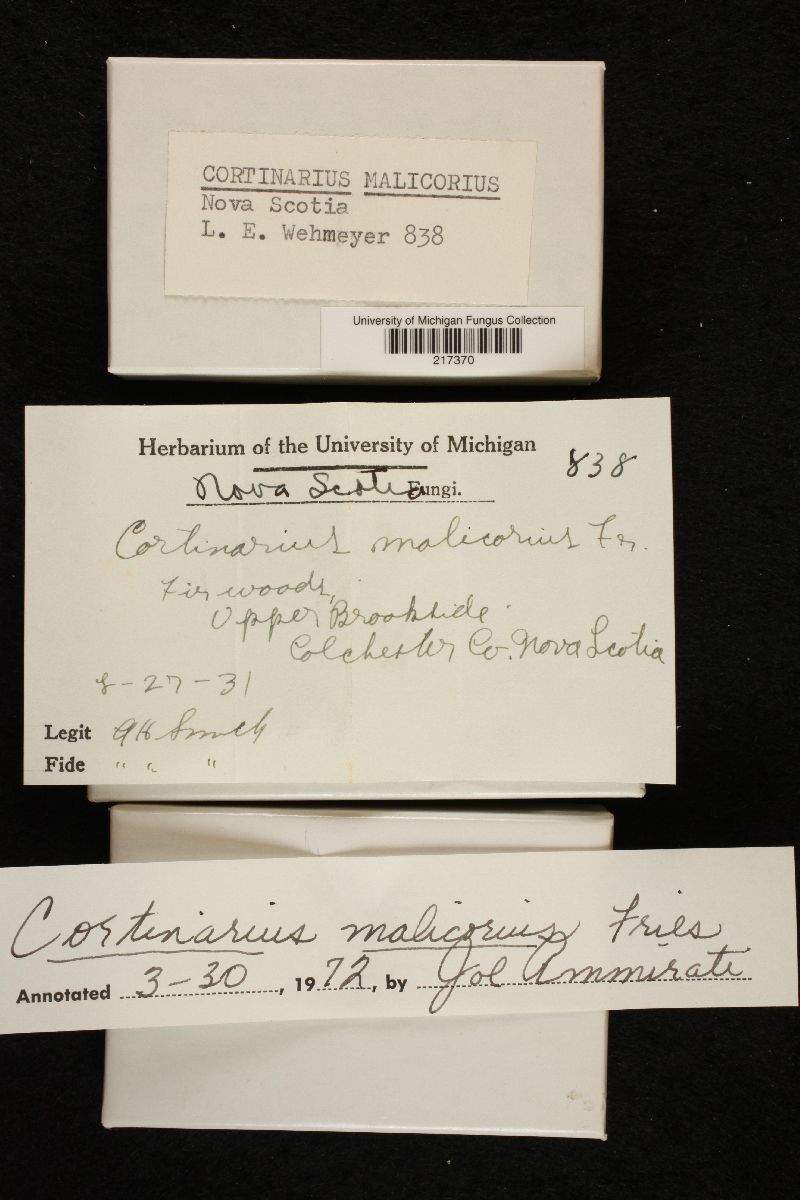 CORTINARIUS MALICORIUS
Nova Scotia
L. E. Wehmeyer 838
University of Michigan Fungus Collection
217370
Herbarium of the University of Michigan
838
Nova Scotia Fungi.
Cortinarius malicorius Fr.
Fir woods,
Upper Brookside.
Colchester Co. Nova Scotia
8-27-31
Legit AH Smith
Fide " " "
Cortinarius malicorius Fries
Annotated 3-30, 1972, by Joe Ammirati